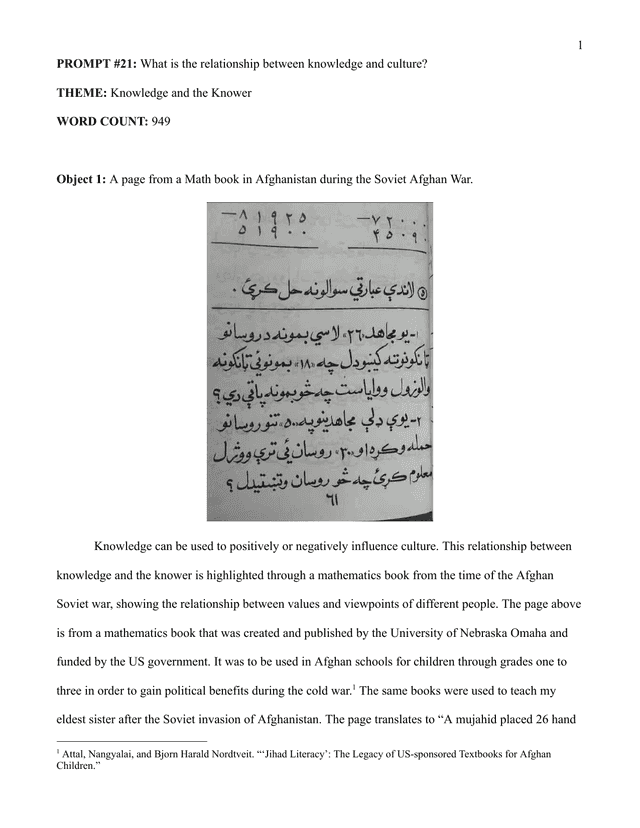 1
PROMPT #21: What is the relationship between knowledge and culture?
THEME: Knowledge and the Knower
WORD COUNT: 949
Object 1: A page from a Math book in Afghanistan during the Soviet Afghan War.
−۷۲۰۰۰ −۸۱۹۲۵
۴۵۰۹۰ ۵۱۹۰۰
⑤ لاندې عبارتي سوالونه حل کړئ .
۱- یو مجاهد «۲۶» لاسي بمونه د روسانو
ټانکونو ته کېښودل چه «۱۸» بمونو ئې ټانکونه
والوزول ووایاست چه څو بمونه پاتې دي؟
۲- یوې ډلې مجاهدینو په «۵۰۰» تنو روسانو
حمله وکړه او روسان ئې ترې ووژل
معلوم کړئ چه څو روسان وتښتېدل؟
۶۱
Knowledge can be used to positively or negatively influence culture. This relationship between
knowledge and the knower is highlighted through a mathematics book from the time of the Afghan
Soviet war, showing the relationship between values and viewpoints of different people. The page above
is from a mathematics book that was created and published by the University of Nebraska Omaha and
funded by the US government. It was to be used in Afghan schools for children through grades one to
three in order to gain political benefits during the cold war.¹ The same books were used to teach my
eldest sister after the Soviet invasion of Afghanistan. The page translates to “A mujahid placed 26 hand
¹ Attal, Nangyalai, and Bjorn Harald Nordtveit. “‘Jihad Literacy’: The Legacy of US-sponsored Textbooks for Afghan
Children.”